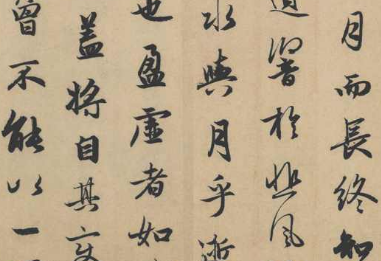 月而長終知
遺響於悲風
水與月乎逝
也盈虛者如
蓋將自其變
曾不能以一